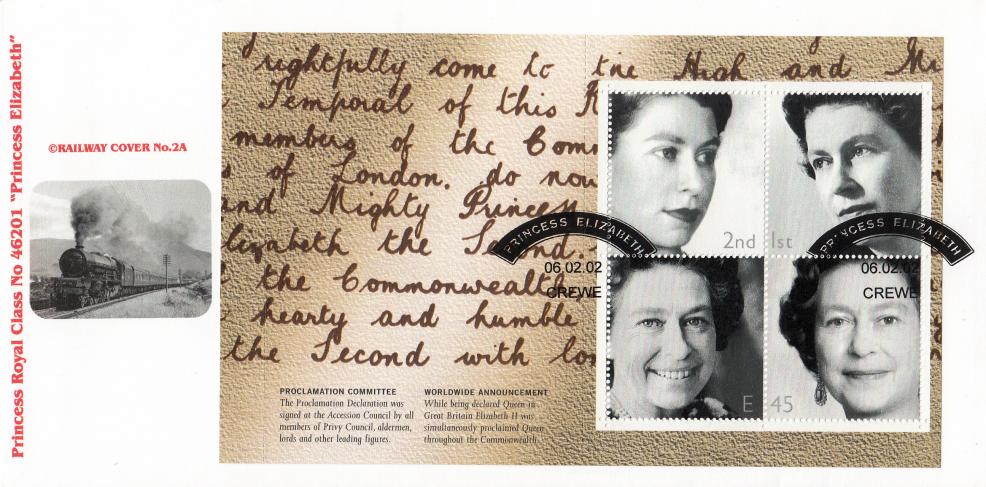 Princess Royal Class No 46201 "Princess Elizabeth"
©RAILWAY COVER No.2A
rightfully come to the High and
Temporal of this
members of the Com
of London, do now
and Mighty Princess
lizabeth the Second.
the Commonwealth
hearty and humble
the Second with lo
PROCLAMATION COMMITTEE
The Proclamation Declaration was
signed at the Accession Council by all
members of Privy Council, aldermen,
lords and other leading figures.
WORLDWIDE ANNOUNCEMENT
While being declared Queen in
Great Britain Elizabeth II was
simultaneously proclaimed Queen
throughout the Commonwealth.
2nd
1st
E
45
PRINCESS ELIZABETH
06.02.02
CREWE
PRINCESS ELIZABETH
06.02.02
CREWE